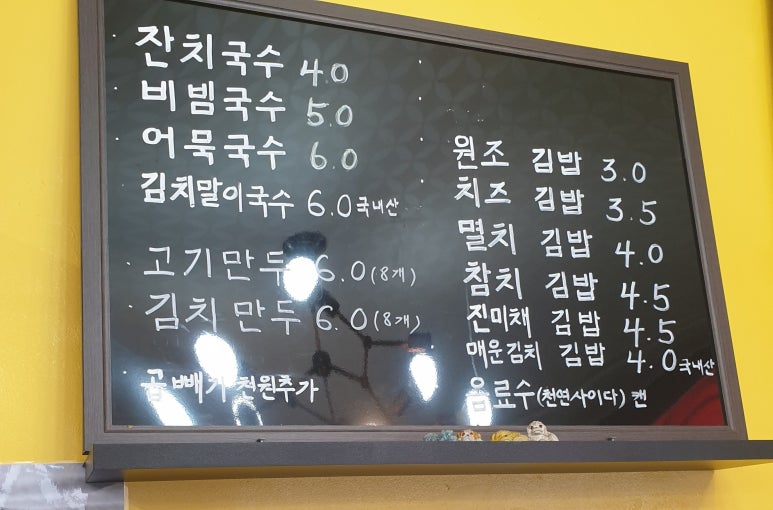 잔치국수 4.0
비빔국수 5.0
어묵국수 6.0
김치말이국수 6.0 국내산
고기만두 6.0 (8개)
김치만두 6.0 (8개)
곱빼기 천원추가
원조 김밥 3.0
치즈 김밥 3.5
멸치 김밥 4.0
참치 김밥 4.5
진미채 김밥 4.5
매운김치 김밥 4.0 국내산
음료수 (천연사이다) 캔